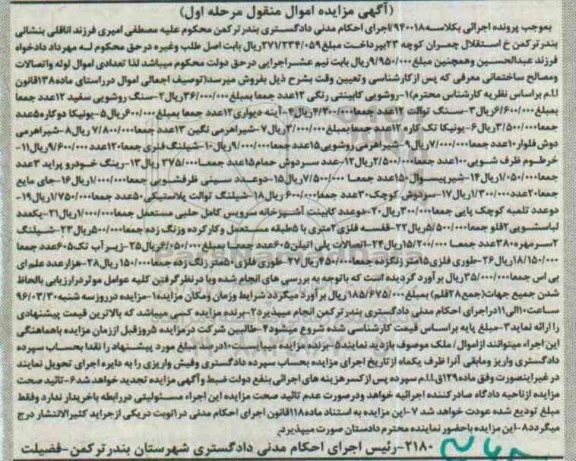 (آگهی مزایده اموال منقول مرحله اول)
بموجب پرونده اجرائی بکلاسه ۹۴۰۰۱۸/اجرای احکام مدنی دادگستری بندر ترکمن محکوم علیه مصطفی امیری فرزند اناقلی بنشانی
بندر ترکمن خ استقلال چمران کوچه ۲۳بپرداخت مبلغ ۳۷۱/۲۳۴/۰۵۹ریال بابت اصل طلب وغیره درحق محکوم لـه مهرداد دادخواه
فرزند عبدالحسین وهمچنین مبلغ ۹/۹۵۰/۰۰۰ریال بابت نیم عشراجرایی درحق دولت محکوم میباشد لذا تعدادی اموال لوله واتصالات
ومصالح ساختمانی معرفی که پس ازکارشناسی وتعیین وقت بشرح ذیل بفروش میرسد(توصیف اجمالی اموال درراستای ماده۱۳۸قانون
ا.ا.م براساس نظریه کارشناس محترم)۱-روشویی کابینتی رنگی ۱۲عدد جمعا بمبلغ ۳۶/۰۰۰/۰۰۰ریال۲-سنگ روشویی سفید ۱۲عدد جمعا
بمبلغ ۶/۶۰۰/۰۰۰ریال۳-سنگ توالت ۱۲عدد جمعا ۴/۲۰۰/۰۰۰ریال۴-آینه دیواری۱۲عدد جمعا بمبلغ ۶۰۰/۰۰۰ریال۵-یونیکا دوکاره۵عدد
جمعا ۳/۵۰۰/۰۰۰ریال۶-یونیکا تک کاره ۱۲عدد جمعا بمبلغ ۳/۰۰۰/۰۰۰ریال۷-شیراهرمی نگین ۱۳عدد جمعا ۷/۸۰۰/۰۰۰ریال۸-شیراهرمی
دوش فلوار ۱۰عدد جمعا ۷/۰۰۰/۰۰۰ریال۹-شیراهرمی روشویی۱۵عدد جمعا ۹/۰۰۰/۰۰۰ریال۱۰-شیلنگ فنری جمعا۱۲۰عدد ۹/۶۰۰/۰۰۰ریال۱۱-
خرطوم ظرف شویی۱۰۰عدد جمعا ۲/۵۰۰/۰۰۰ریال۱۲-عدد سردوش حمام۱۵عدد جمعـا ۳۷۵/۰۰۰ریال ۱۳-رینگ خودرو پراید ۳عدد
جمعا ۱/۰۵۰/۰۰۰ریال۱۴-شیرپیسـوال۱۵۰عدد جمعـا ۷/۵۰۰/۰۰۰ریال۱۵-دوعـدد سـینی ظرفشـویی جمعا۱/۰۰۰/۰۰۰ریال۱۶-جای مایع
جمعا۲۰عدد ۱/۳۰۰/۰۰۰ریال۱۷-سردوش کوچک۳۰عدد جمعا ۶۰۰/۰۰۰ ریال۱۸-شیلنگ توالت پلاستیکی۵۰عدد جمعا۱/۷۵۰/۰۰۰ریال۱۹-
دوعدد تلمبه کوچک پایی جمعا۳۰۰/۰۰۰ریال۲۰-دوعدد کابینت آشـپزخانه سرویس کامل حلبی مستعمل جمعا۱/۰۰۰/۰۰۰ریال۲۱-یکعدد
لباسشـویی۲قلو جمعا ۵/۵۰۰/۰۰۰ریال۲۲-قفسه فلزی۲متری با۵طبقه مستعمل وکارکرده وزنگ زده جمعا ۵۰۰/۰۰۰ریال۲۳-شیلنگ
۲سرمهره۳۸۰عدد جمعا ۱۵/۲۰۰/۰۰۰ریال۲۴-اتصالات پلی اتیلن۶۰۵عدد جمعـا بمبلغ ۶/۰۵۰/۰۰۰ریال۲۵-زیـر آب تک۶۰۵عدد جمعا
۱۸/۱۵۰/۰۰۰ریال۲۶-طوری فلزی۱۵مترزنگ زده جمعا ۴۵۰/۰۰۰ریال۲۷-طوری فلزی۵۰متر زنگ زده جمعا ۱۵۰/۰۰۰ریال ۲۸-هزارعدد علم ای
بی اس جمعا ۳۵/۰۰۰/۰۰۰ریال برآورد گردیده است که باتوجه به بررسی های انجام شده وبا درنظرگرفتن کلیه عوامل موثردرارزیابی بالحاظ
شدن جمیع جهات(جمع۲۸قلم) بمبلغ ۱۸۵/۶۷۵/۰۰۰ریال برآورد میگردد شرایط وزمان ومکان مزایده۱-مزایده درروزسه شنبه ۹۶/۰۳/۳۰
ساعت ۱۰الی۱۱دراجرای احکام مدنی دادگستری بندر ترکمن انجام میپذیرد۲-برنده مزایده کسی میباشد که بالاترین قیمت پیشنهادی
را ارائه نماید۳-مبلغ پایه براساس قیمت کارشناسی شده شروع میشود۴-طالبین شرکت درمزایده ۵روزقبل اززمان مزایده باهماهنگی
این اجراء میتوانند ازاموال/ملک موصوف بازدید نمایند۵-برنده مزایده میبایست۱۰درصد مبلغ مورد پیشنهاد را نقدا بحساب سپرده
دادگستری واریز ومابقی آنرا ظرف یکماه ازتاریخ اجرای مزایده بحساب سپرده دادگستری وفیش واریزی را به دایره اجرای تحویل نمایند
در غیراینصورت وفق ماده۱۲۹ق.ا.ا.م سپرده پس ازکسرهزینه های اجرائی بنفع دولت ضبط وآگهی مزایده تجدید خواهد شد۶-تائید صحت
مزایده ازناحیه دادگاه صادرکننده اجرائیه خواهد ودرصورت عدم تائید صحت مزایده این اجراء مسـئولیتی دررابطه باخریدار ندارد وفقط
مبلغ تودیع شده عودت خواهد شد ۷-این مزایده به استناد ماده۱۱۸قانون اجرای احکام مدنی درانوبت دریکی ازجراید کثیرالانتشار درج
میگردد۸-این مزایده باحضور نماینده محترم دادستان صورت میپذیرد.
۲۱۸۰-رئیس اجرای احکام مدنی دادگستری شهرستان بندر ترکمن-فضیلت